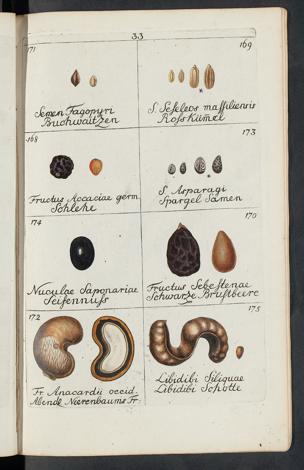 33
171
Semen Fagopyri
Buchwaitzen
169
S. Seseleos massiliensis
Rosskümel
168
Fructus Accaciae germ.
Schlehe
173
S. Asparagi
Spargel Samen
174
Nuculae Saponariae
Seifennuss
170
Fructus Sebestenae
Schwarze Brustbeere
172
Fr. Anacardii occid.
Abend. Nierenbaums Fr.
175
Libidibi Siliquae
Libidibi Schotte